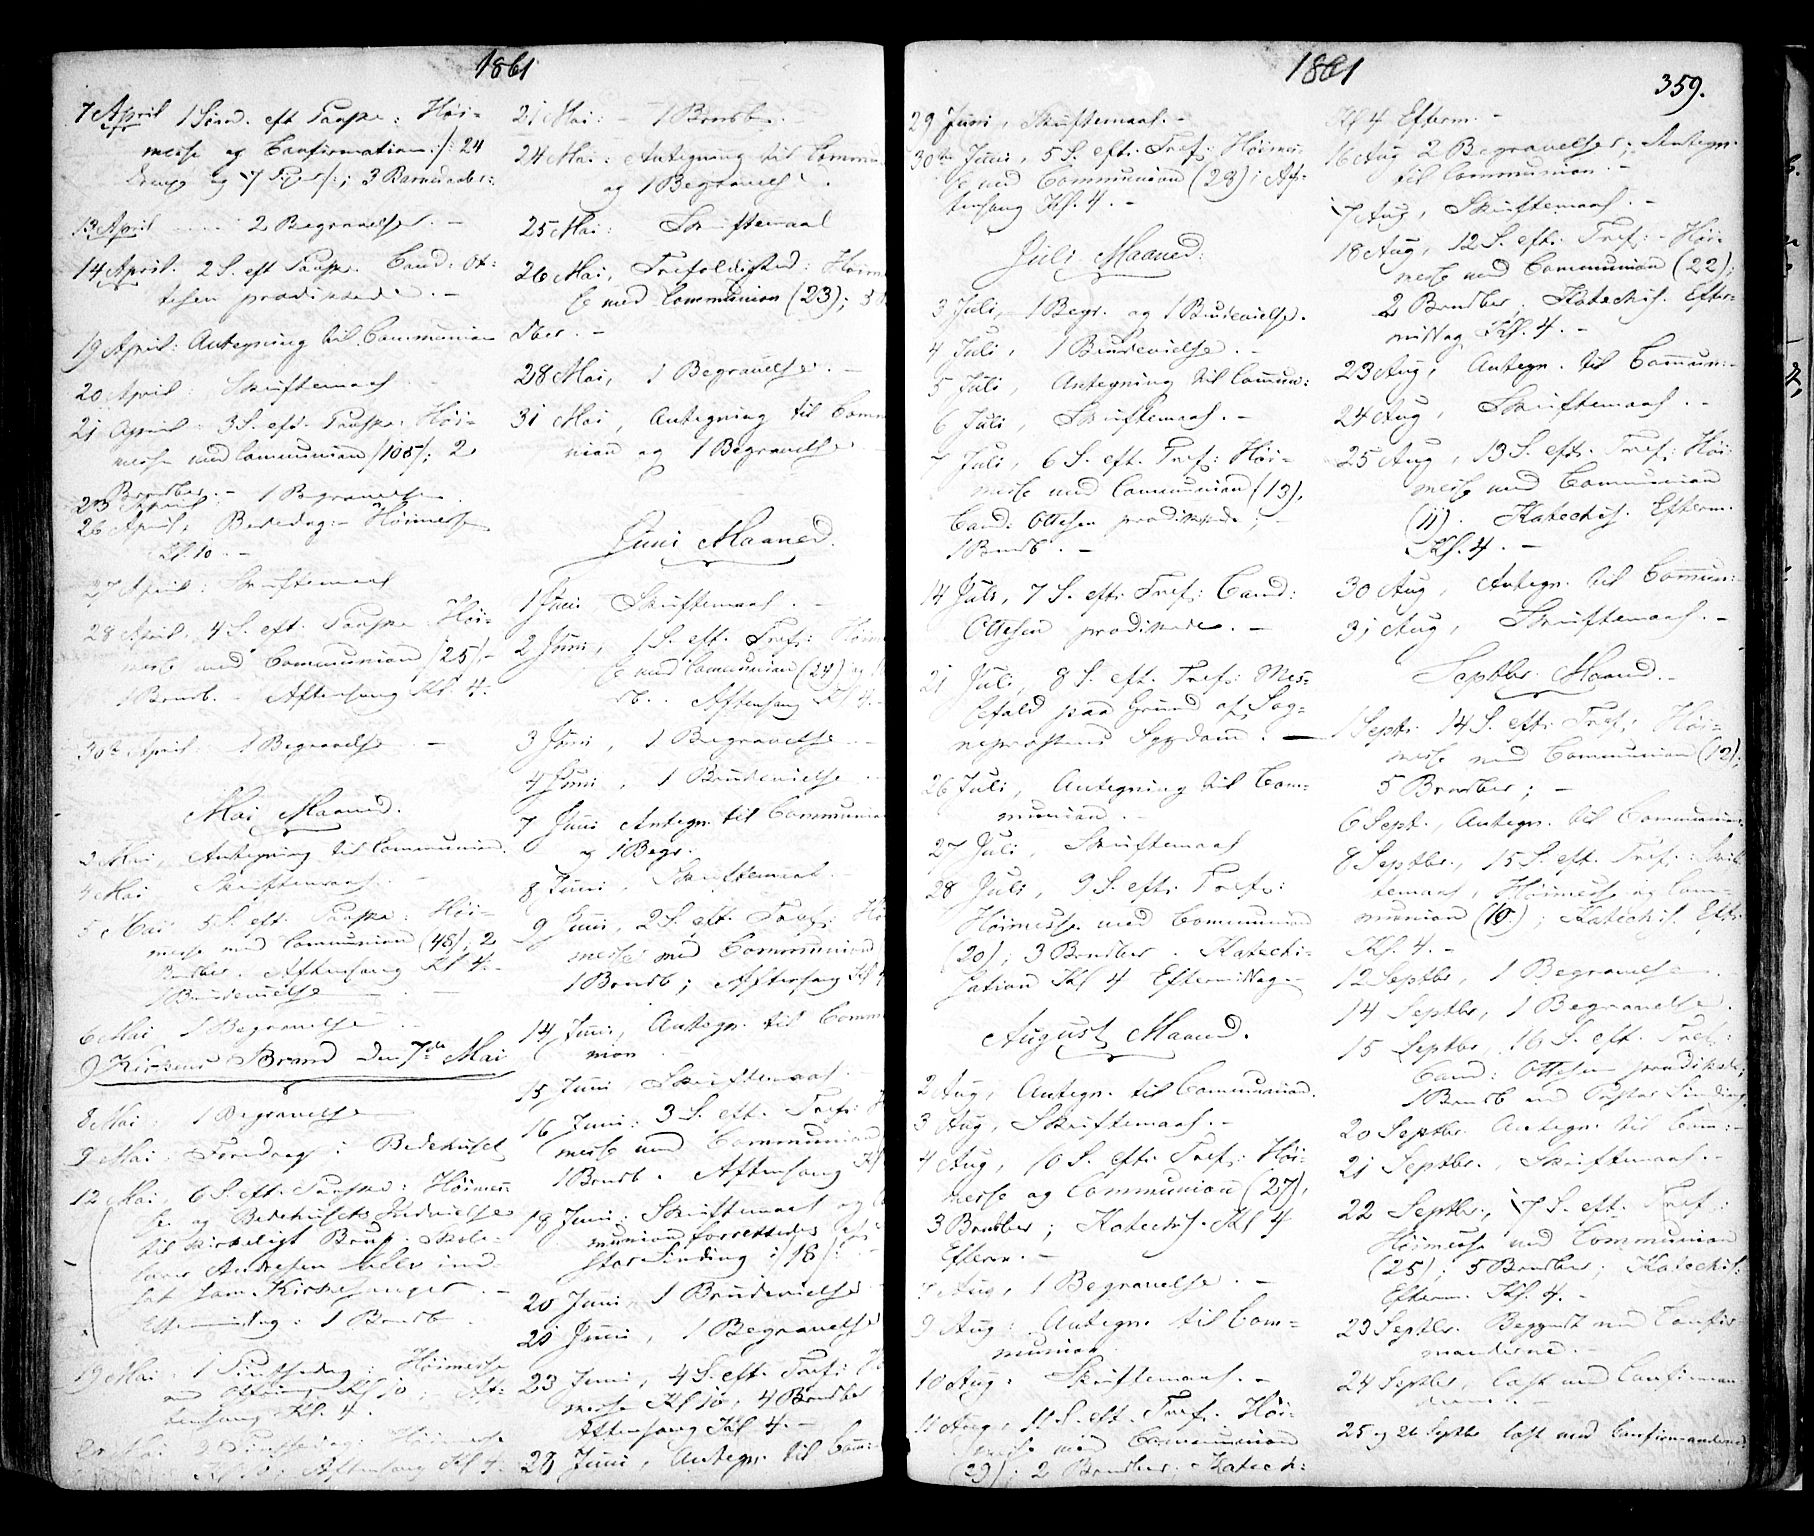 1861
7 April 1 Sønd. eft Paaske: Høi-
messe og Confirmation /: 24
Drenge og 17 Piger :/; 3 Barnedaaber.
13 April 2 Begravelser. -
14 April. 2 S. eft Paaske. Cand: Ot-
tesen prædikede. -
19 April: Antegning til Communion
20 April: Skriftemaal
21 April 3 S. eft. Paaske: Høi-
messe med Communion /105/; 2
Brndber. -
23 April: 1 Begravelse.
26 April, Bededag: - Høimesse
Kl 10. -
27 April: Skriftemaal
28 April, 4 S. eft. Paaske. Høi-
messe med Communion /25/. -
1 Brndb. - Aftensang Kl 4.
30te April: 1 Begravelse -
Mai Maaned.
3 Mai, Antegning til Communion.
4 Mai Skriftemaal. -
5 Mai 5 S. eft. Paaske: Høi-
messe med Communion (48); 2
Brndber. Aftensang Kl 4. -
1 Brudevielse -
6 Mai 1 Begravelse -
Kirkens Brand den 7de Mai
8 Mai: 1 Begravelse
9 Mai: Foredrag i Bedehuset
12 Mai, 6 S. eft. Paaske: Høimes-
se og Bedehusets Indvielse
til kirkeligt Brug. Skole-
lærer Andresen blev ind-
sat som Kirkesanger. -
Eftermiddag: 1 Brndb.
19 Mai: 1 Pintsedag: Høimesse
med Offring Kl 10; Af-
tensang Kl. 4.
20 Mai 2 Pintsedag: Høimesse
Kl 10. Aftensang Kl 4.
21 Mai: - 1 Brndb. -
24 Mai: Antegning til Commu
og 1 Begravelse.
25 Mai: Skriftemaal
26 Mai, Trefoldighed: Høim
se med Communion (23); 3
dber. -
28 Mai, 1 Begravelse. -
31 Mai, Antegning til Comm
nion og 1 Begravelse
Juni Maaned.
1 Juni Skriftemaal. -
2 Juni, 1 S. eft. Tref: Høim
se med Communion (24) og
rb. . Aftensang Kl 4. -
3 Juni, 1 Begravelse -
4 Juni, 1 Brudevielse
7 Juni Antegn. til Communion
og 1 Begr.
8 Juni, Skriftemaal.
9 Juni, 2 S. eft. Tref: Hø
messe med Communion
1 Brndb; Aftensang Kl 4
14 Juni, Antegn. til Comm
nion.
15 Juni, Skriftemaal.
16 Juni: 3 S. eft. Tref: H
messe med Communion
1 Brndb. Aftensang Kl
18 Juni: Skriftemaal og
munion forrettedes af
stor Sinding /18/. -
20 Juni, 1 Brudevielse
21 Juni, 1 Begravelse
23 Juni, 4 S. eft. Tref:
messe Kl 10, 4 Brndber
Aftensang Kl 4. -
28 Juni, Antegn. til Com-
1861
359.
29 Juni, Skriftemaal. -
30te Juni, 5 S. eft. Tref: Høimes-
se med Communion (28); Af-
tensang Kl. 4. -
Juli Maaned:
3 Juli, 1 Begr. og 1 Brudevielse.
4 Juli, 1 Brudevielse. -
5 Juli, Antegning til Commun:
6 Juli, Skriftemaal. -
7 Juli, 6 S. eft. Tref: Høi-
messe med Communion (13),
Cand: Ottesen prædikede; -
1 Brndb. -
14 Juli, 7 S. eft. Tref: Cand:
Ottesen prædikede. -
21 Juli, 8 S. eft. Tref: Mes-
sefald paa Grund af Sog-
nepræstens Sygdom. -
26 Juli, Antegning til Com-
munion. -
27 Juli, Skriftemaal
28 Juli, 9 S. eft. Tref:
Høimesse med Communion
(20); 3 Brndber. Katechi-
sation Kl 4 Eftermiddag.
August Maaned.
2 Aug, Antegn. til Communion.
3 Aug, Skriftemaal. -
4 Aug, 10 S. eft. Tref: Høi-
messe og Communion (27),
3 Brndber; Katechis. Kl 4
Efterm. -
7 Aug, 1 Begravelse. -
9 Aug: Antegn. til Com-
munion.
10 Aug: Skriftemaal. -
11 Aug, 11 S. eft. Tref. Høi-
messe med Communion
(29); 2 Brndber. Katech:
Kl 4 Efterm. -
16 Aug 2 Begravelser; Antegn.
til Communion. -
17 Aug, Skriftemaal. -
18 Aug, 12 S. eft. Tref: - Høi-
messe med Communion (22);
2 Brndber; Katechis. Efter-
middag Kl. 4. -
23 Aug, Antegn. til Commun: -
24 Aug, Skriftemaal. -
25 Aug, 13 S. eft. Tref: Høi-
messe med Communion
(11). Katechis. Efterm.
Kl. 4. -
30 Aug, Antegn. til Commun: -
31 Aug, Skriftemaal. -
Septbr Maaned. -
1 Septr. 14 S. eft. Tref: Høi-
messe med Communion (12);
5 Brndber; -
6 Sept., Antegn. til Communion.
8 Septbr., 15 S. eft. Tref: Skrif-
temaal, Høimesse og Com-
munion (10); Katechis. Eft:
Kl. 4. -
12 Septbr, 1 Begravelse.
14 Septbr, 1 Begravelse.
15 Septbr, 16 S. eft. Tref:
Cand: Ottesen prædikede;
1 Brndb ved Pastor Sinding.
20 Septbr. Antegn. til Com: -
21 Septbr., Skriftemaal. -
22 Septbr., 17 S. eft. Tref:
Høimesse med Communion
(25); 5 Brndber; Katechis:
Efterm. Kl. 4. -
23 Septbr. Begyndt med Confir
manderne. -
24 Septbr, læst med Confirman
derne. -
25 og 26 Septbr læst med Confirmanderne